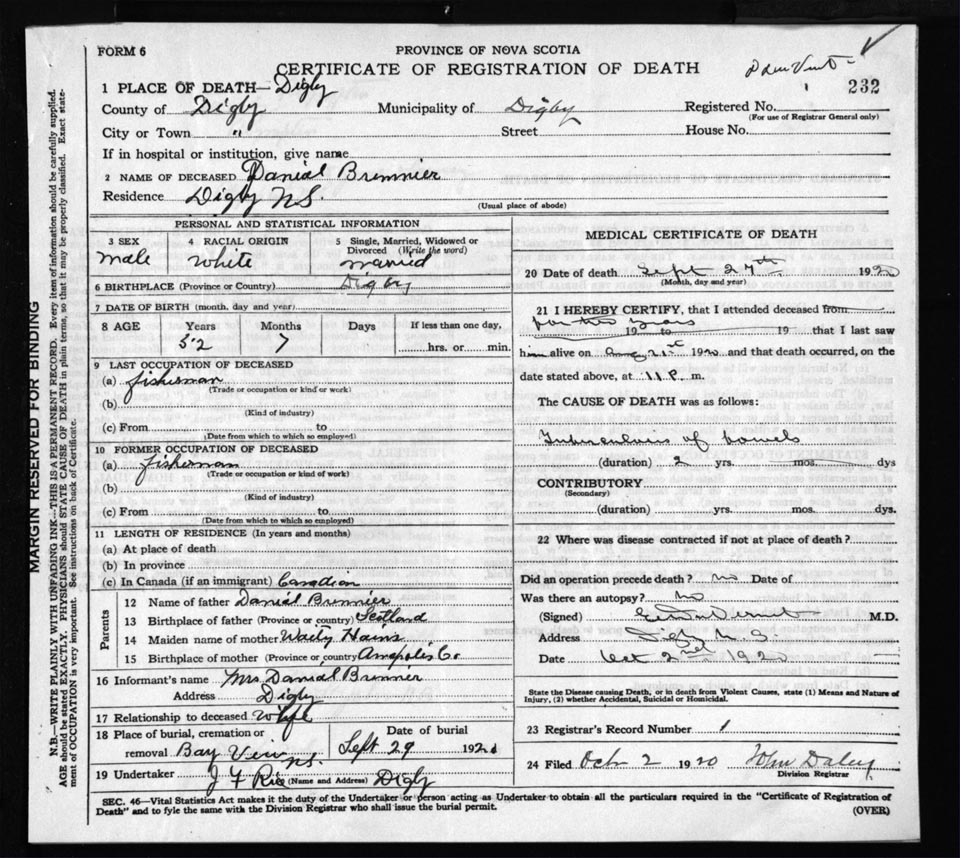 FORM 6
PROVINCE OF NOVA SCOTIA
CERTIFICATE OF REGISTRATION OF DEATH
232
1 PLACE OF DEATH— Digby
County of Digby Municipality of Digby Registered No.
(For use of Registrar General only)
City or Town " Street House No.
If in hospital or institution, give name
2 NAME OF DECEASED Danial Brennier
Residence Digby N.S.
(Usual place of abode)
PERSONAL AND STATISTICAL INFORMATION
3 SEX 4 RACIAL ORIGIN 5 Single, Married, Widowed or Divorced (Write the word)
male white married
6 BIRTHPLACE (Province or Country) Digby
7 DATE OF BIRTH (month, day and year)
8 AGE Years Months Days If less than one day,
52 7 hrs. or min.
9 LAST OCCUPATION OF DECEASED
(a) fisherman
(Trade or occupation or kind of work)
(b)
(Kind of industry)
(c) From to
(Date from which to which so employed)
10 FORMER OCCUPATION OF DECEASED
(a) fisherman
(Trade or occupation or kind of work)
(b)
(Kind of industry)
(c) From to
(Date from which to which so employed)
11 LENGTH OF RESIDENCE (In years and months)
(a) At place of death
(b) In province
(c) In Canada (if an immigrant) Canadian
Parents
12 Name of father Danial Brennier
13 Birthplace of father (Province or country) Scotland
14 Maiden name of mother Hains
15 Birthplace of mother (Province or country) Annapolis Co
16 Informant's name Mrs Danial Brenner
Address Digby
17 Relationship to deceased Wife
18 Place of burial, cremation or removal Date of burial
Bay View N.S. Sept 29 1920
19 Undertaker J F Rice (Name and Address) Digby
MEDICAL CERTIFICATE OF DEATH
20 Date of death Sept 27th 1920
(Month, day and year)
21 I HEREBY CERTIFY, that I attended deceased from
for two years
19 to 19 that I last saw
him alive on Aug 21st 1920 and that death occurred, on the
date stated above, at 11 P. m.
The CAUSE OF DEATH was as follows:
Tuberculosis of bowels
(duration) 2 yrs. mos. dys
CONTRIBUTORY
(Secondary)
(duration) yrs. mos. dys.
22 Where was disease contracted if not at place of death?
Did an operation precede death? no Date of
Was there an autopsy? no
(Signed) M.D.
Address Digby N.S.
Date Oct 2nd 1920
State the Disease causing Death, or in death from Violent Causes, state (1) Means and Nature of Injury, (2) whether Accidental, Suicidal or Homicidal.
23 Registrar's Record Number 1
24 Filed Octr 2 1920 John Daley
Division Registrar
SEC. 46—Vital Statistics Act makes it the duty of the Undertaker or person acting as Undertaker to obtain all the particulars required in the "Certificate of Registration of
Death" and to fyle the same with the Division Registrar who shall issue the burial permit.
(OVER)
MARGIN RESERVED FOR BINDING
N.B.—WRITE PLAINLY WITH UNFADING INK—THIS IS A PERMANENT RECORD. Every item of information should be carefully supplied.
AGE should be stated EXACTLY. PHYSICIANS should STATE CAUSE OF DEATH in plain terms, so that it may be properly classified. Exact state-
ment of OCCUPATION is very important. See instructions on back of Certificate.